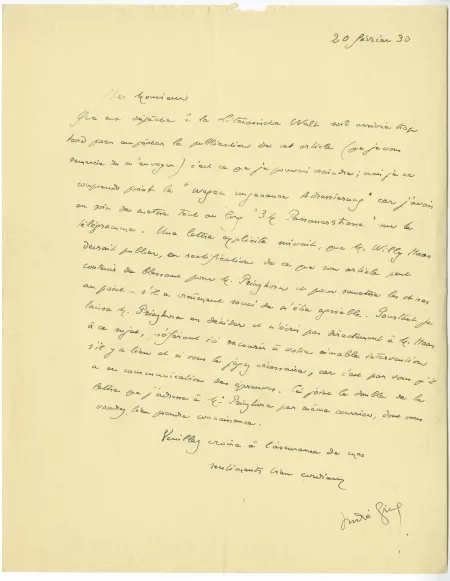 20 février 30
Cher Monsieur
Que ma dépêche à la Literarische Welt soit arrivée trop
tard pour empêcher la publication de cet article (que je vous
remercie de m'envoyer) c'est ce que je pouvais craindre; mais je ne
comprends point le "wegen ungenauer Adressierung" car j'avais
eu soin de mettre tout au long "34 Passauerstrasse" sur le
télégramme. Une lettre explicite suivait, que M. Willy Haas
devrait publier, en rectification de ce que son article peut
contenir de blessant pour M. Prinzhorn et pour remettre les choses
au point - s'il a vraiment souci de m'être agréable. Pourtant je
laisse M. Prinzhorn en décider et n'écris pas directement à M. Haas
à ce sujet, préférant ici recourir à votre aimable intervention
s'il y a lieu et si vous le jugez nécessaire, car c'est par vous qu'il
a eu communication des épreuves. Ci joint le double de la
lettre que j'adresse à M. Prinzhorn par même courrier, dont vous
voudrez bien prendre connaissance.
Veuillez croire à l'assurance de mes
sentiments bien cordiaux
André Gide